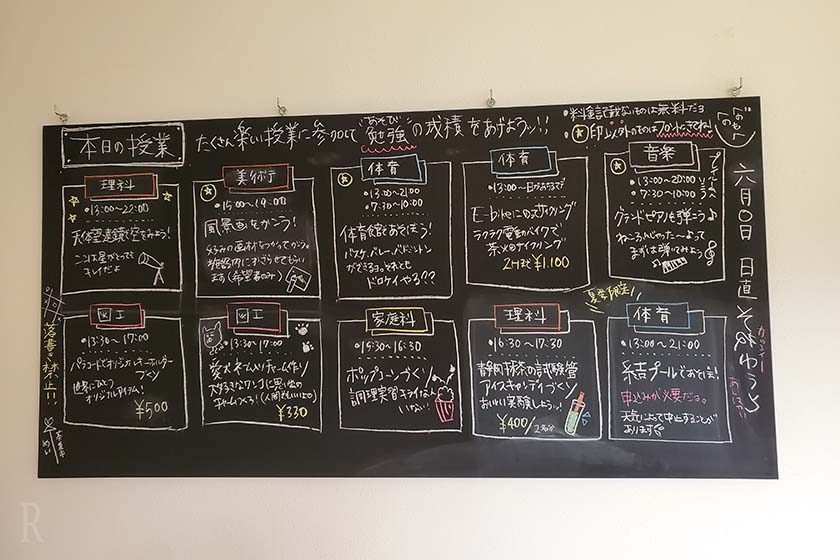 本日の授業
たくさん楽しい授業に参加して
あそび
勉強の成績をあげようッ!!
印以外のものはフロントにきてね!
理科
13:00~22:00
天体望遠鏡で空をみよう!
ここは星がとっても
キレイだよ
美術
15:00~19:00
風景画をかこう!
体育
13:00~21:00
7:30~10:00
体育館であそぼう!
バスケ、バレー、バドミントン
ができるヨ。それとも
ドロケイやる??
体育
E-bikeにのってサイクリング
ラクラク電動バイクで
茶畑サイクリング
2Hまで ¥1,100
音楽
13:00~20:00
7:30~10:00
グランドピアノを弾こう♪
ねこふんじゃった~よって
まずは弾いてみよう
図工
13:30~17:00
パラコードでオリジナルキーホルダー
世界にひとつ
オリジナルアイテム!
¥500
図工
13:30~17:00
愛犬ネーム入りチャームづくり
¥330
家庭科
15:30~16:30
ポップコーンづくり
調理実習キライなん
いない!
理科
16:30~17:30
静岡抹茶の試験管
アイスキャンディづくり
おいしい実験しようッ!
¥400/
夏季限定
体育
13:00~21:00
申込みが必要だよ。
天気によって中止することが
あります
六月〇日
日直
落書き禁止!!
R